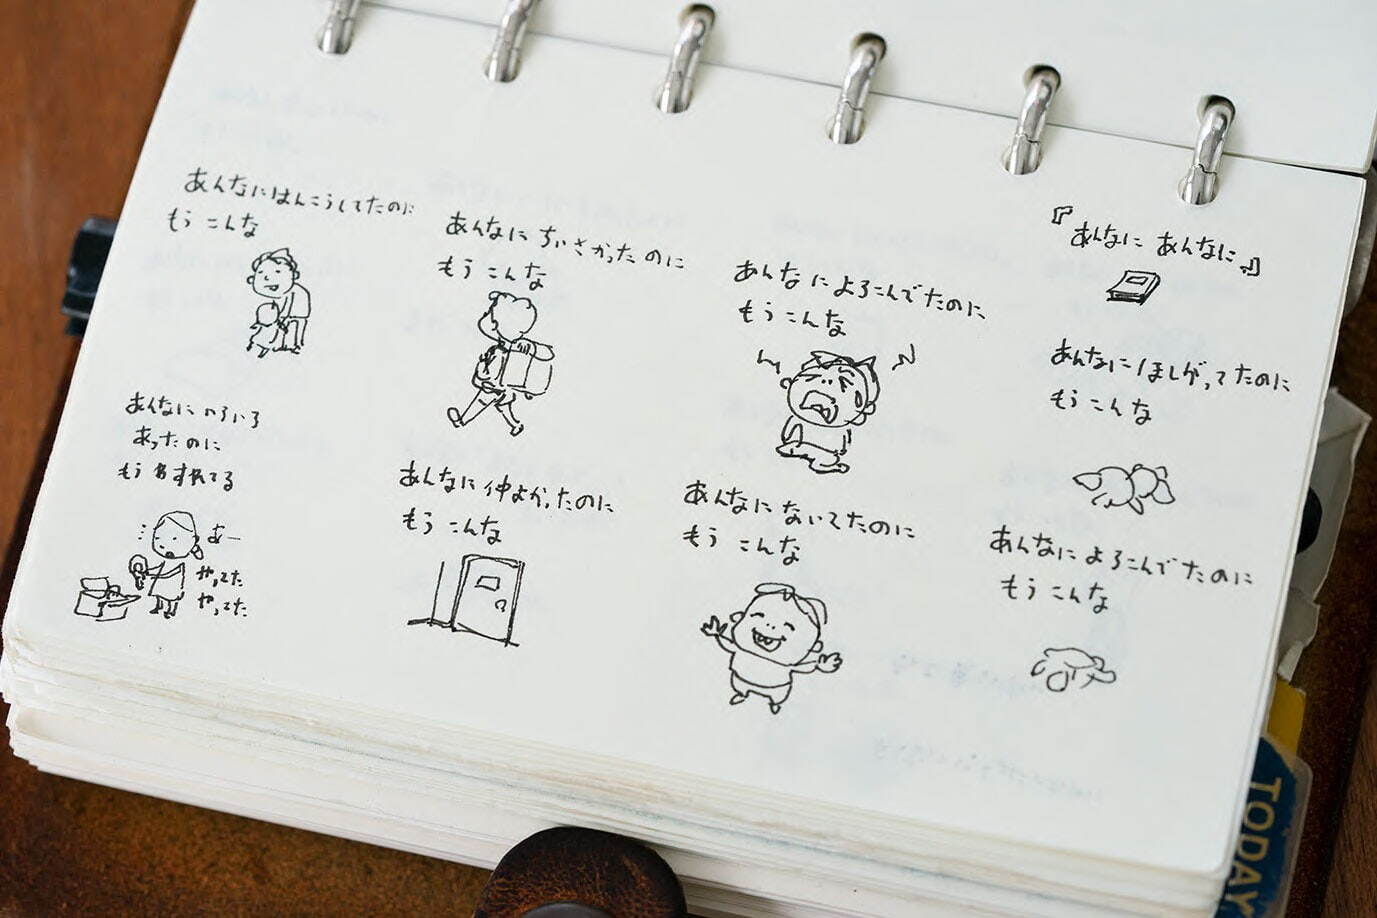 『あんなに あんなに』
あんなにほしがってたのに
もう こんな
あんなによろこんでたのに
もう こんな
あんなによろこんでたのに
もう こんな
あんなに ないてたのに
もう こんな
あんなに ちいさかったのに
もう こんな
あんなに 仲よかったのに
もう こんな
あんなにはんこうしてたのに
もう こんな
あんなにいろいろ
あったのに
もう わすれてる
あー
やってた
やってた
TODAY